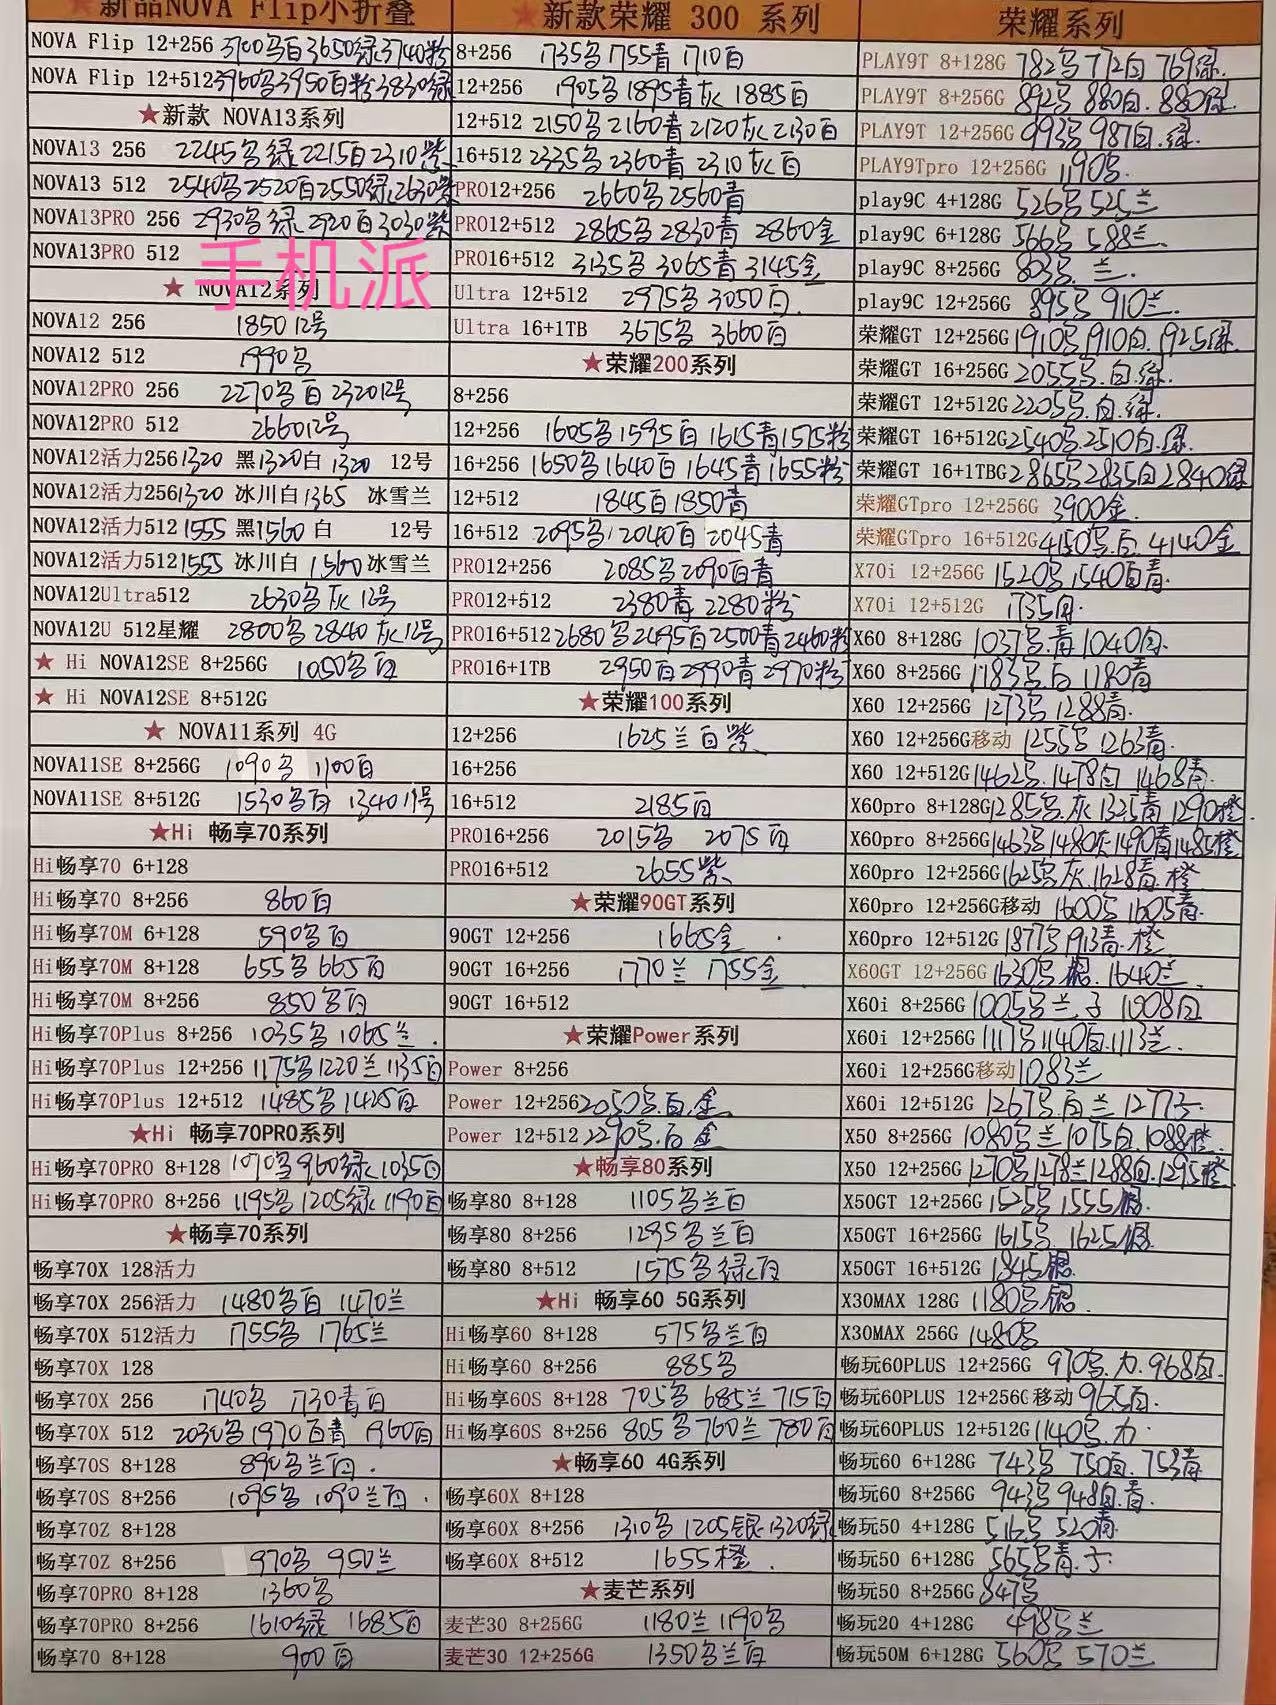 新品NOVA Flip小折叠
NOVA Flip 12+256 3700 白3650绿3740粉
NOVA Flip 12+512 3960 3950白粉3830绿
★新款 NOVA13系列
NOVA13 256 2245 绿2215白2310紫
NOVA13 512 2540 2520白2550绿2630紫
NOVA13PRO 256 2930 绿2920白3030紫
NOVA13PRO 512
手机派
★ NOVA12系列
NOVA12 256 1850 12号
NOVA12 512 1990
NOVA12PRO 256 2270 白2320 12号
NOVA12PRO 512 2660 12号
NOVA12活力256 1320 黑1320白 1320 12号
NOVA12活力256 1320 冰川白1365 冰雪兰
NOVA12活力512 1555 黑1560 白 12号
NOVA12活力512 1555 冰川白 1560 冰雪兰
NOVA12Ultra512 2630 灰 12号
NOVA12U 512星耀 2800 2840 灰12号
★ Hi NOVA12SE 8+256G 1050 白
★ Hi NOVA12SE 8+512G
★ NOVA11系列 4G
NOVA11SE 8+256G 1090 1100白
NOVA11SE 8+512G 1530 白 1340 11号
★Hi 畅享70系列
Hi畅享70 6+128
Hi畅享70 8+256 860白
Hi畅享70M 6+128 590 白
Hi畅享70M 8+128 655 665白
Hi畅享70M 8+256 850 白
Hi畅享70Plus 8+256 1035 1065兰.
Hi畅享70Plus 12+256 1175 1220兰1135白
Hi畅享70Plus 12+512 1485 1425白
★Hi 畅享70PRO系列
Hi畅享70PRO 8+128 1070 960绿1035白
Hi畅享70PRO 8+256 1195 1205绿1190白
★畅享70系列
畅享70X 128活力
畅享70X 256活力 1480 白 1470兰
畅享70X 512活力 1755 1765兰
畅享70X 128
畅享70X 256 1740 1730青白
畅享70X 512 2030 1970白青 1960白
畅享70S 8+128 890 兰白.
畅享70S 8+256 1095 1090兰白.
畅享70Z 8+128
畅享70Z 8+256 970 950兰
畅享70PRO 8+128 1360
畅享70PRO 8+256 1610绿 1685白
畅享70 8+128 900白
★新款荣耀 300 系列
8+256 1735 1755青 1710白
12+256 1905 1895青灰 1885白
12+512 2150 2160青2120灰2130白
16+512 2335 2360青 2310灰白
PRO12+256 2660 2560青
PRO12+512 2865 2830青 2860金
PRO16+512 3135 3065青3145金
Ultra 12+512 2975 3050白
Ultra 16+1TB 3675 3660白
★荣耀200系列
8+256
12+256 1605 1595白1615青1575粉
16+256 1650 1640白 1645青1655粉
12+512 1845白1850青
16+512 2095 2040白2045青
PRO12+256 2085 2090白青
PRO12+512 2380青 2280粉
PRO16+512 2680 2495白2500青2460粉
PRO16+1TB 2950白2990青2970粉
★荣耀100系列
12+256 1625兰白紫
16+256
16+512 2185白
PRO16+256 2015 2075白
PRO16+512 2655紫
★荣耀90GT系列
90GT 12+256 1665金
90GT 16+256 1770兰 1755金
90GT 16+512
★荣耀Power系列
Power 8+256
Power 12+256 2050 .白.金
Power 12+512 2290 .白.金
★畅享80系列
畅享80 8+128 1105 兰白
畅享80 8+256 1295 兰白
畅享80 8+512 1575 绿白
★Hi 畅享60 5G系列
Hi畅享60 8+128 575 兰白
Hi畅享60 8+256 885
Hi畅享60S 8+128 705 685兰 715白
Hi畅享60S 8+256 805 760兰 780白
★畅享60 4G系列
畅享60X 8+128
畅享60X 8+256 1310 1205银1320绿
畅享60X 8+512 1655橙
★麦芒系列
麦芒30 8+256G 1180兰1190
麦芒30 12+256G 1350 兰白
荣耀系列
PLAY9T 8+128G 782 772白 769绿.
PLAY9T 8+256G 892 880白.880绿.
PLAY9T 12+256G 993 987白.绿.
PLAY9Tpro 12+256G 1190
play9C 4+128G 526 525兰
play9C 6+128G 566 588兰.
play9C 8+256G 803 .兰.
play9C 12+256G 895 910兰.
荣耀GT 12+256G 1910 1910白.1925绿.
荣耀GT 16+256G 2055 .白.绿.
荣耀GT 12+512G 2205 .白.绿.
荣耀GT 16+512G 2540 .2510白.绿.
荣耀GT 16+1TBG 2865 2835白2840绿
荣耀GTpro 12+256G 3900金.
荣耀GTpro 16+512G 4150 .白.4140金
X70i 12+256G 1520 1540白青.
X70i 12+512G 1735白.
X60 8+128G 1037 .青1040白.
X60 8+256G 1183 .白 1180青
X60 12+256G 1273 1288青.
X60 12+256G移动 1255 1263青.
X60 12+512G 1462 .1478白.1468青.
X60pro 8+128G 1285 .灰1325青1290橙.
X60pro 8+256G 1463 1480灰1490青1485橙
X60pro 12+256G 1625 灰.1628青.橙.
X60pro 12+256G移动 1600 1605青.
X60pro 12+512G 1877 1913青.橙.
X60GT 12+256G 1630 银.1640兰.
X60i 8+256G 1005 兰. 1008白
X60i 12+256G 1117 1140白.1113兰.
X60i 12+256G移动 1083兰
X60i 12+512G 1267 .白兰1277
X50 8+256G 1080 兰1075白.1088橙.
X50 12+256G 1270 1278兰1288白.1295橙
X50GT 12+256G 1525 1555银.
X50GT 16+256G 1615 .1625银.
X50GT 16+512G 1845银.
X30MAX 128G 1180 银.
X30MAX 256G 1480
畅玩60PLUS 12+256G 970 .力.968白.
畅玩60PLUS 12+256G移动 965白.
畅玩60PLUS 12+512G 1140 .力.
畅玩60 6+128G 743 750白.753青
畅玩60 8+256G 943 948白.青.
畅玩50 4+128G 516 520青.
畅玩50 6+128G 565 青.
畅玩50 8+256G 847
畅玩20 4+128G 498 兰
畅玩50M 6+128G 560 570兰